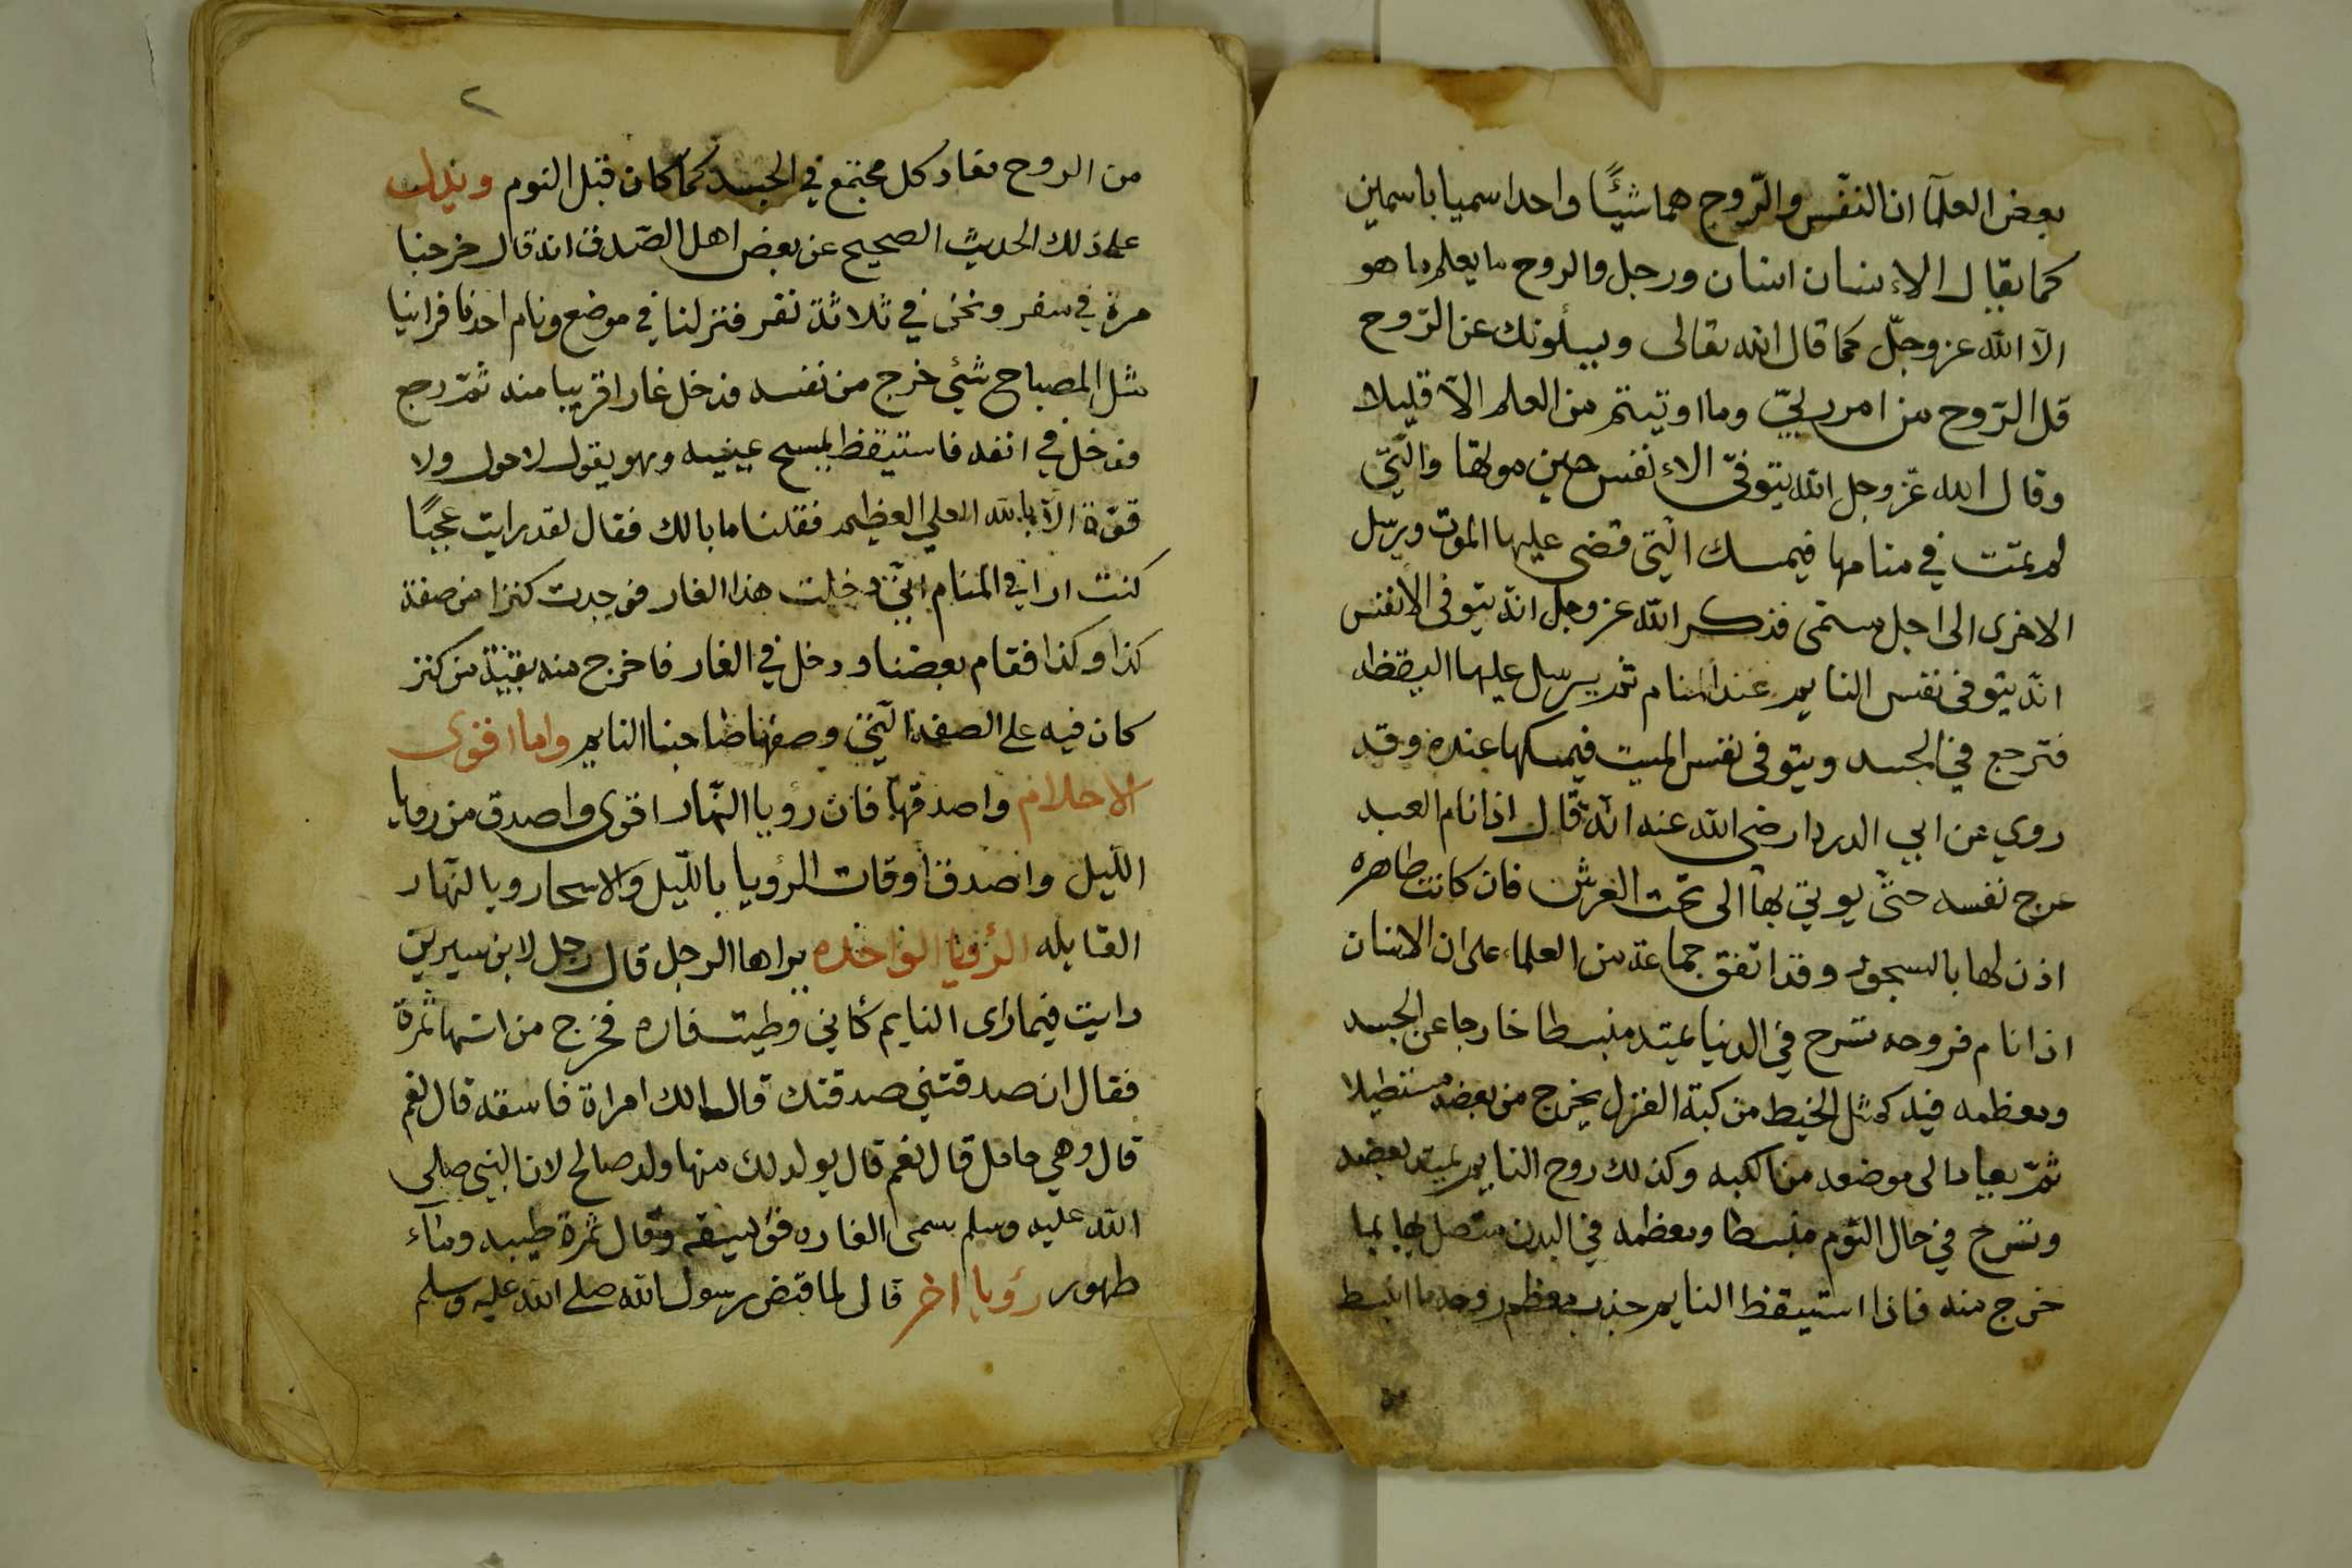 بعض العلمآ ان النفس والرّوح هما شيئًا واحدا سميا باسمين
كما يقال الاءنسان انسان ورجل والروح ما يعلم ما هو
الآ الله عز وجلّ كما قال الله تعالى ويسألونك عن الرّوح
قل الرّوح من امر ربيّ وما اوتيتم من العلم الآ قليلا
وقال الله عزّ وجل الله يتوفىّ الاءنفس حين موتها والتيّ
لم تمت في منامها فيمسك التي قضى عليها الموت ويرسل
الاخرى الى اجل مسمّى فذكر الله عز وجل انه يتوفى الانفس
انه يتوفى نفس النايم عند المنام ثم يرسل عليها اليقظه
فترجع في الجسد ويتوفى نفس الميت فيمسكها عنده وقد
روي عن ابي الدردا رضى الله عنه انه قال اذا نام العبد
عرج نفسه حتىّ يوتي بها الى تحت العرش فان كانت طاهره
اذن لها بالسجود وقد اتفق جماعة من العلماء على ان الانسان
اذا نام فروحه تسرح في الدنيا يمتد منبسطا خارجا عن الجسد
ومعظمه فيه كمثل الخيط من كبة الغزل يخرج من بعضه مستطيلا
ثمّ يعاد الى موضعه من الكبه وكذلك روح النايم يمتد بعضه
وتسرح في حال النّوم منبسطا ومعظمه في البدن متصل بها بما
خرج منه فاذا استيقظ النايم جذب معظم روحه ما انبسط
٢
من الروح فعاد كل مجتمع في الجسد كما كان قبل النوم ويدل
على ذلك الحديث الصحيح عن بعض اهل الصّدق انه قال خرجنا
مرة في سفر ونحن في ثلاثة نفر فنزلنا في موضع ونام احدنا فراينا
مثل المصباح شئ خرج من نفسه فدخل غارا قريبا منه ثمّ رجع
فدخل في انفه فاستيقظ يمسح عينيه وهو يقول لا حول ولا
قوّة الاّ بالله العلي العظيم فقلنا ما بالك فقال لقد رايت عجبًا
كنت ارا في المنام انيّ دخلت هذا الغار فوجدت كنزا من صفة
كذا وكذا فقام بعضنا ودخل في الغار فاخرج منه بقية من كنز
كان فيه على الصفة التي وصفها صاحبنا النايم واما اقوى
الاحلام واصدقها فان رؤيا النّهار اقوى واصدق من روياء
اللّيل واصدق اوقات الرؤيا باللّيل والاسحار وبالنهار
القايله الرؤيا الواحده يراها الرجل قال رجل لابن سيرين
رايت فيما راى النايم كأني وطيت فاره فخرج من استها ثمرة
فقال ان صدقتني صدقتك قال الك امراة فاسقه قال نعم
قال وهي حامل قال نعم قال يولد لك منها ولد صالح لان النبي صلي
الله عليه وسلم سمى الفاره فويسقه وقال ثمرة طيبه وماء
طهور رؤيا اخر قال لما قبض رسول الله صلى الله عليه وسلم